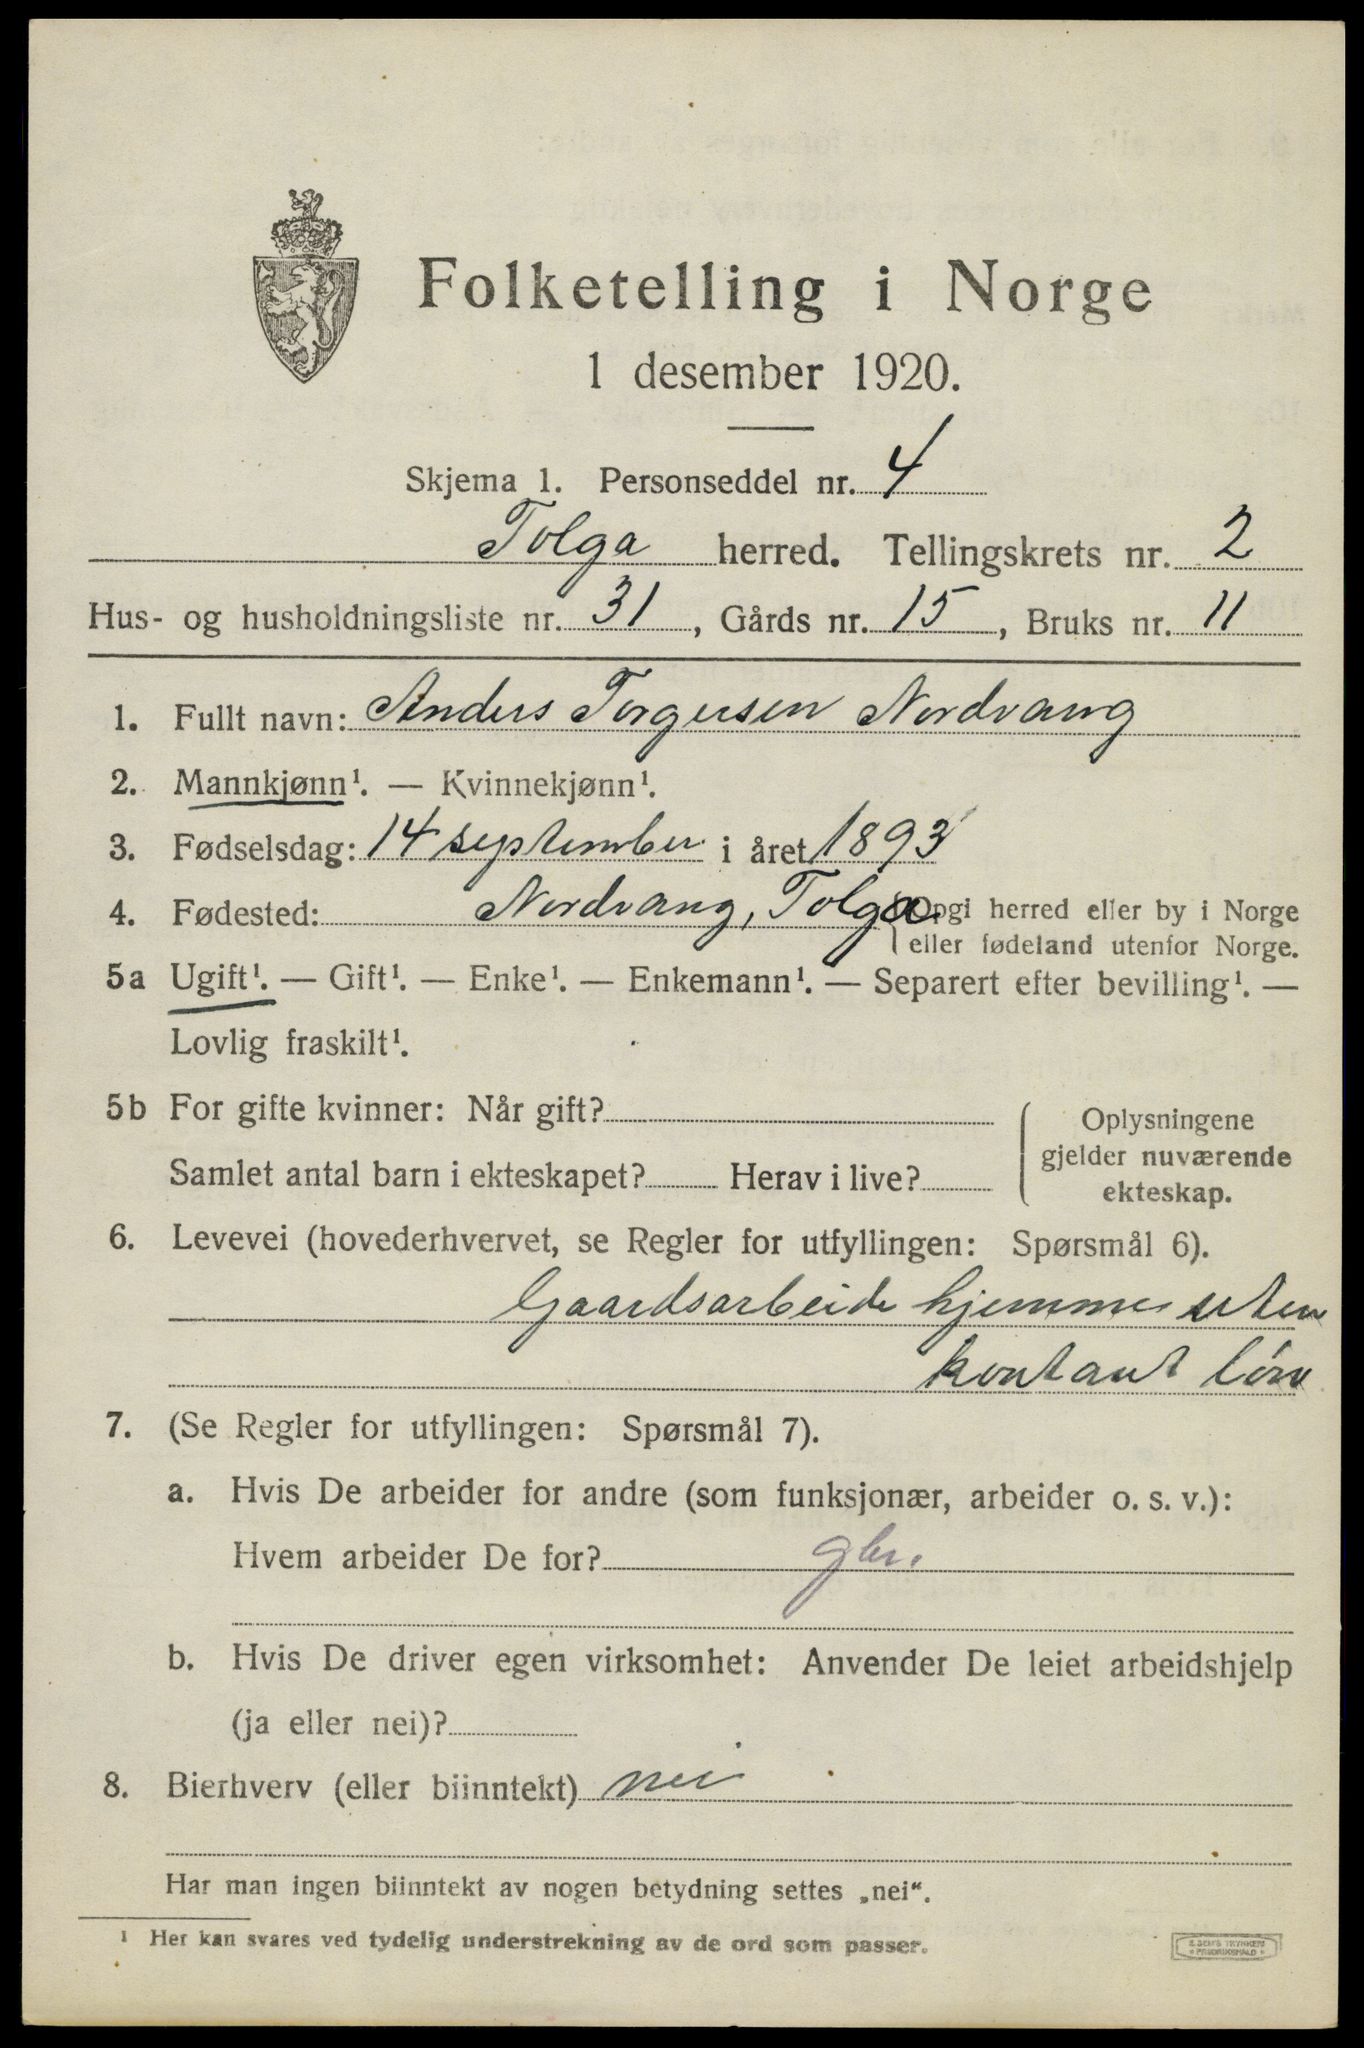 Folketelling i Norge
1 desember 1920.
Skjema 1. Personseddel nr. 4
Tolga herred. Tellingskrets nr. 2
Hus- og husholdningsliste nr. 31, Gårds nr. 15, Bruks nr. 11
1. Fullt navn: Anders Torgersen Nordvang
2. Mannkjønn¹. — Kvinnekjønn¹.
3. Fødselsdag: 14 september i året 1893
4. Fødested: Nordvang, Tolga Opgi herred eller by i Norge
eller fødeland utenfor Norge.
5a Ugift¹. — Gift¹. — Enke¹. — Enkemann¹. — Separert efter bevilling¹. —
Lovlig fraskilt¹.
5b For gifte kvinner: Når gift?
Samlet antal barn i ekteskapet? Herav i live?
Oplysningene
gjelder nuværende
ekteskap.
6. Levevei (hovederhvervet, se Regler for utfyllingen: Spørsmål 6).
Gaardsarbeide hjemme uten
kontant løn
7. (Se Regler for utfyllingen: Spørsmål 7).
a. Hvis De arbeider for andre (som funksjonær, arbeider o. s. v.):
Hvem arbeider De for? gbr.
b. Hvis De driver egen virksomhet: Anvender De leiet arbeidshjelp
(ja eller nei)?
8. Bierhverv (eller biinntekt) nei
Har man ingen biinntekt av nogen betydning settes „nei“.
¹ Her kan svares ved tydelig understrekning av de ord som passer.
E. SEM'S TRYKKERI
FREDRIKSHALD